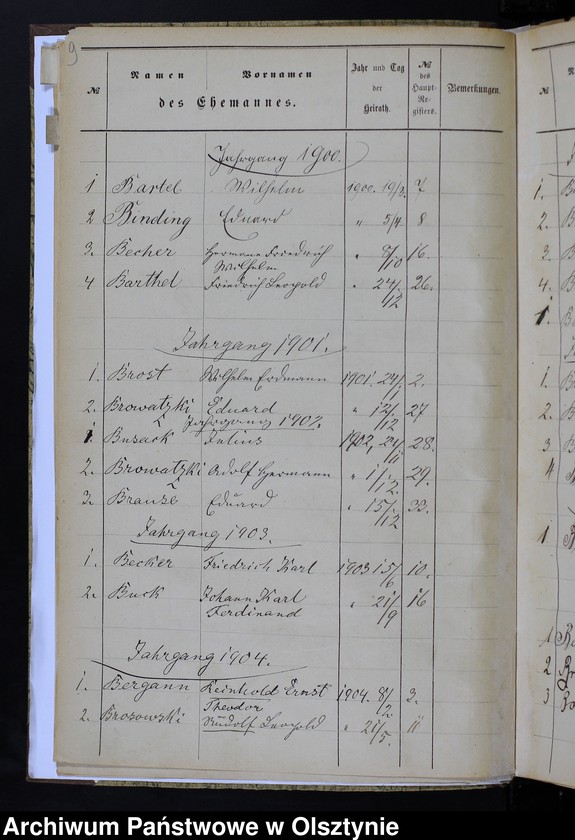 9
№ Namen Vornamen Jahr und Tag der Heirath. № des Haupt-Re-gisters. Bemerkungen.
des Ehemannes.
Jahrgang 1900.
1 Bartel Wilhelm 1900. 19/2. 7
2 Binding Eduard " 5/4 8
3. Becher Hermann Friedrich Wilhelm " 8/10 16.
4 Barthel Friedrich Leopold " 24/12 26.
Jahrgang 1901.
1. Brost Wilhelm Erdmann 1901. 24/1 2.
2. Browatzki Eduard " 12/12 27
Jahrgang 1902.
1. Busack Julius 1902, 24/11 28.
2. Browatzki Adolf Hermann " 1/12. 29.
3. Brause Eduard " 15/12 33.
Jahrgang 1903.
1. Becker Friedrich Karl 1903 15/6 10.
2. Buck Johann Karl Ferdinand " 21/9 16
Jahrgang 1904.
1. Bergann Reinhold Ernst Theodor 1904. 8/2 3.
2. Brosowski Rudolf Leopold " 21/5. 11
Archiwum Państwowe w Olsztynie